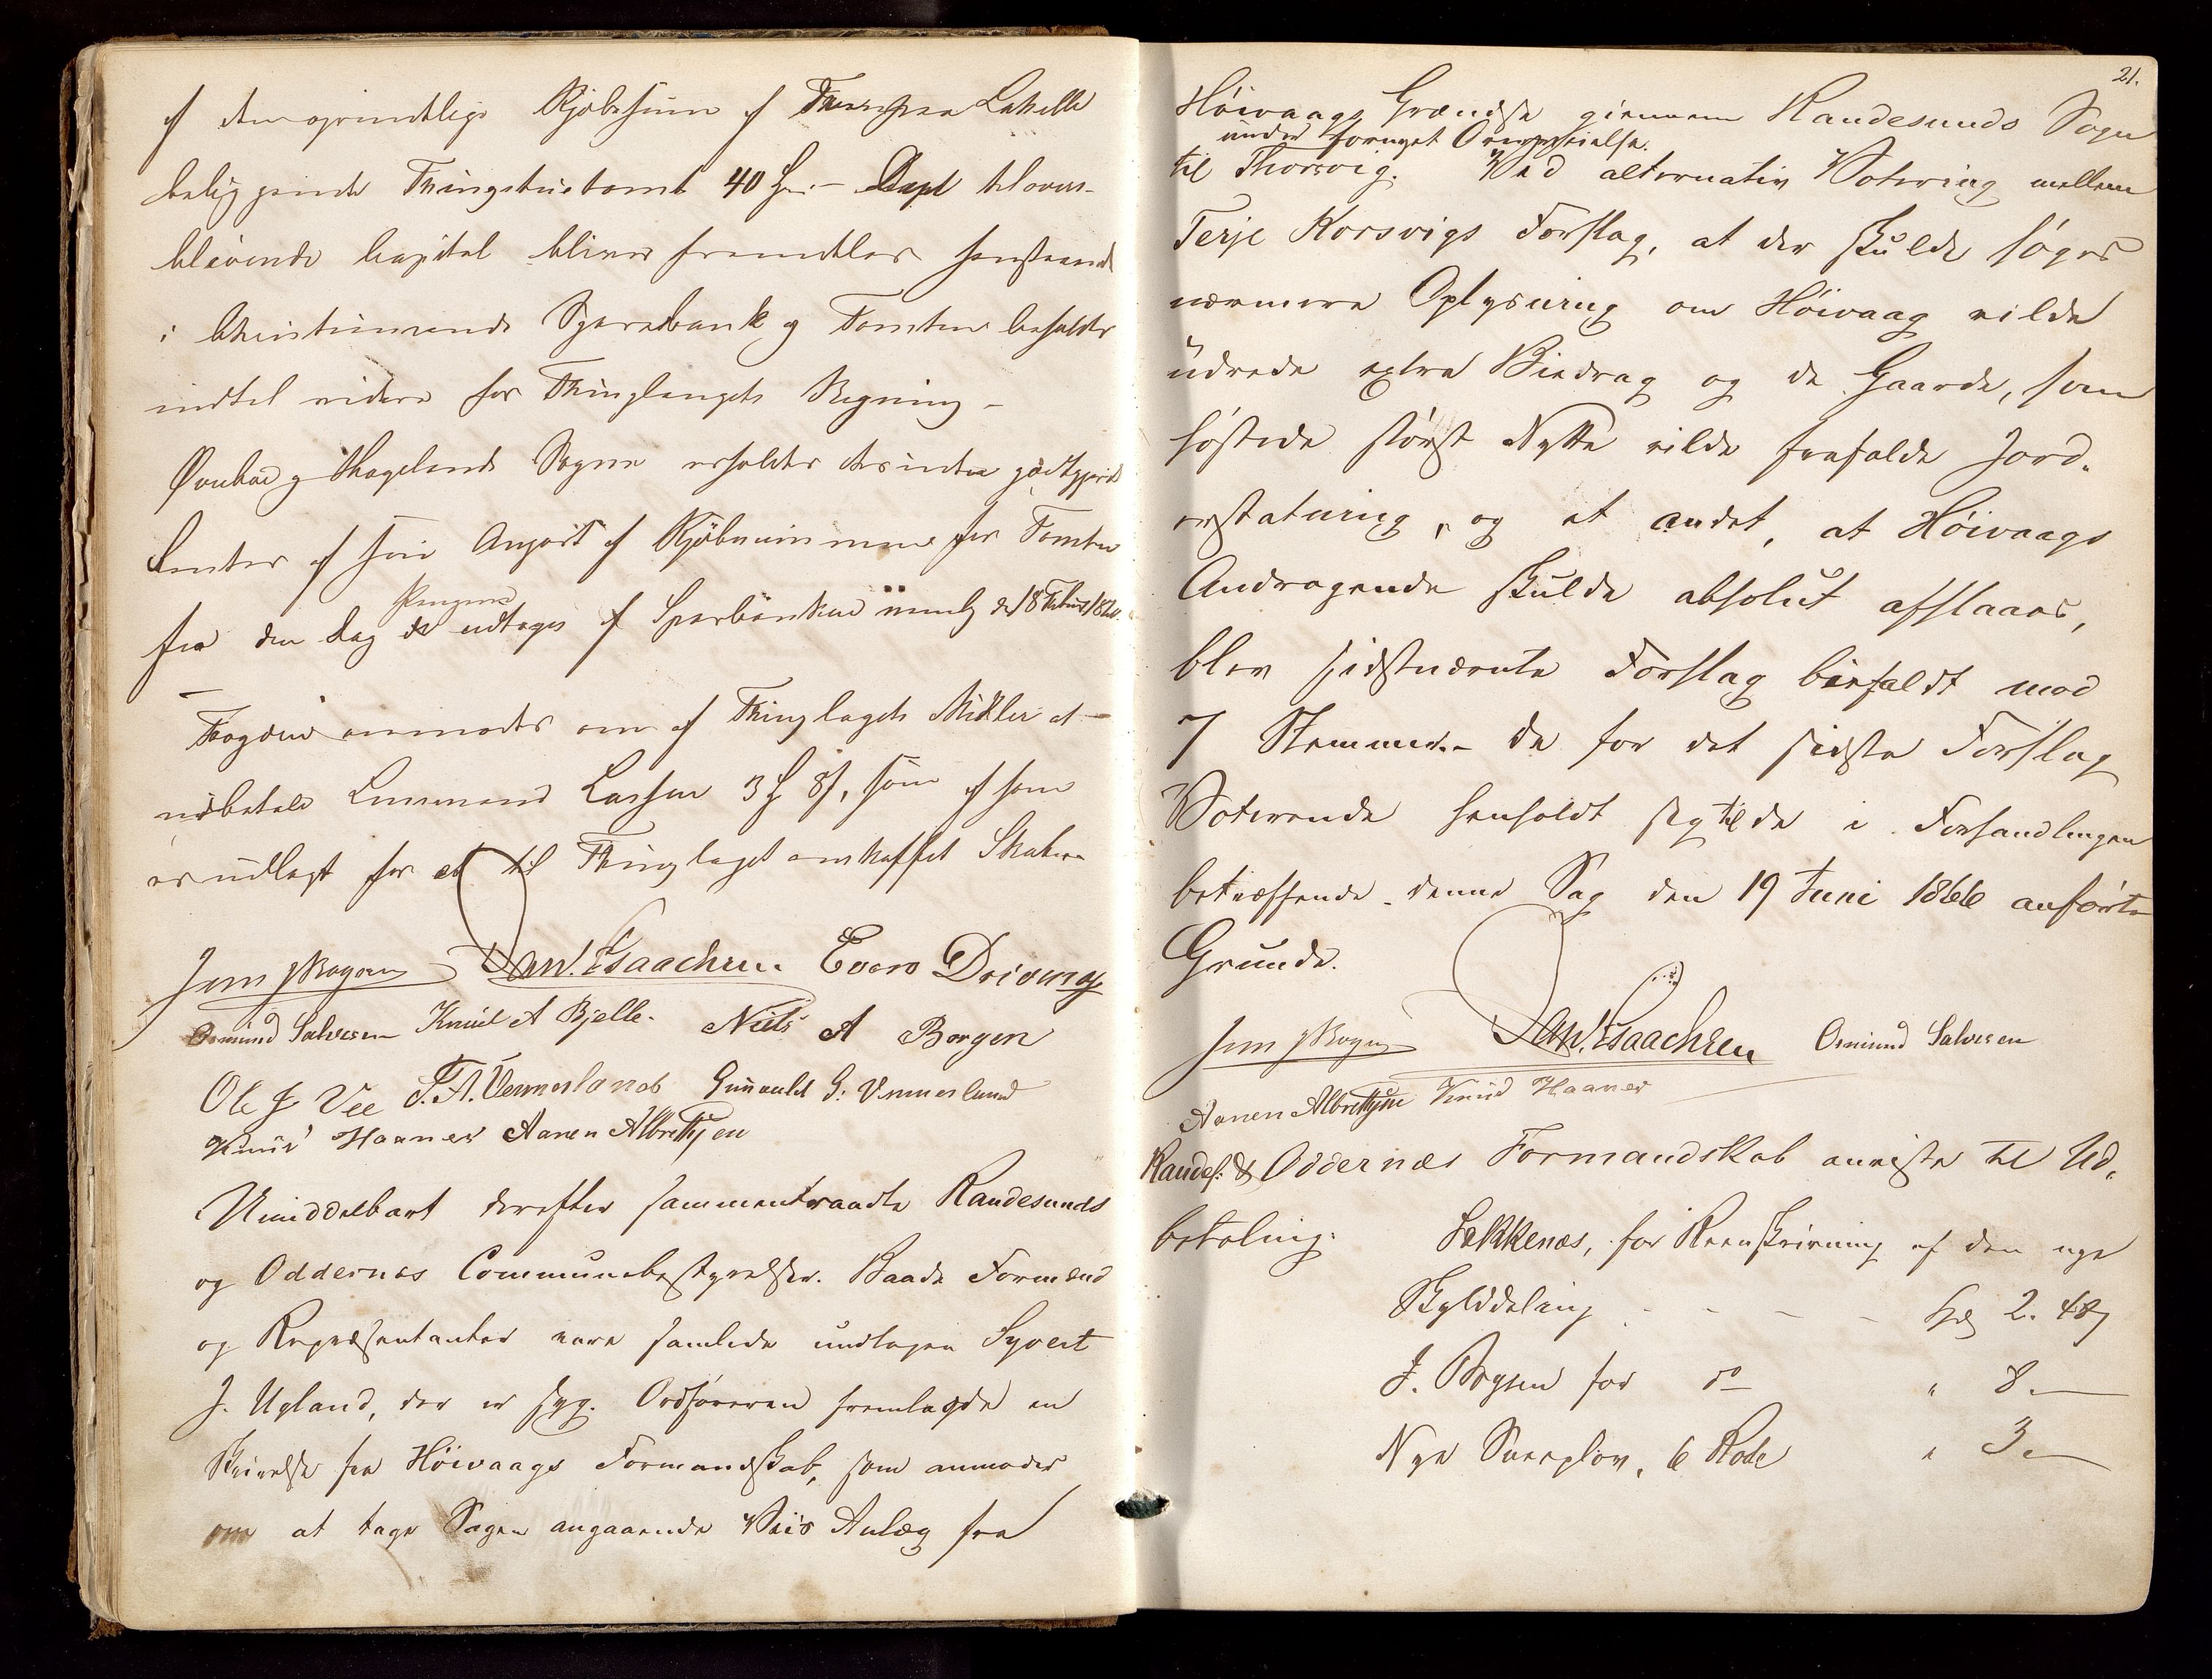 af den oprindelige Kjøbesum af
beliggende Thingstuetomt 40 Spd. – Det tilovers-
blivende Capital bliver fremdeles henstaaende
i Christiansands Sparebank og Tomten beholdes
indtil videre for Thinglagets Regning –
Øvrebø og Hægelands Sogne erholder desuden godtgjort
Renter af sin Anpart af Kjøbesummen for Tomten
fra den Dag Pengene udtoges af Sparebanken
Fogden anmodes om af Thinglagets Midler at
udbetale Lensmand Larsen 3 Spd 8 s, som af ham
er udlagt for et til Thinglaget anskaffet
Dan. Isaachsen Even Drivnes
Osmund Salvesen Knud A Bjelle. Niels A Borgen
Ole J Vee T. A. Vennesland Gunnuld G. Vennesland
Knud Haanes Aanen Albretsen
Umiddelbart derefter sammentraadte Randesunds
og Oddernes Communebestyrelser. Baade Formænd
og Repræsentanter vare samlede undtagen Syvert
J. Ugland, der er syg. Ordføreren fremlagde en
Skrivelse fra Høivaags Formandskab, som anmoder
om at tage Sagen angaaende Veis Anlæg fra
21.
Høivaags Grændse giennem Randesunds Sogn
under fornyet Overveielse.
til Thorsvig. Ved alternativ Votering mellem
Terje Korsvigs Forslag, at der skulde søges
nærmere Oplysning om Høivaag vilde
udrede extra Biedrag og de Gaarde, som
høstede størst Nytte vilde frafalde Jord-
erstatning, og et andet, at Høivaags
Andragende skulde absolut afslaaes,
blev sidstnævnte Forslag bifaldt mod
7 Stemmer. – De for det sidste Forslag
Voterende henholdt sig til de i Forhandlingen
betræffende denne Sag den 19 Juni 1866 anførte
Grunde.
Dan. Isaachsen Osmund Salvesen
Aanen Albretsen Knud Haanes
Randes. & Oddernæs Formandskab anviste til Ud-
betaling. Sækkenæs, for Reenskrivning af den nye
Skylddeling - - - - Spd 2. 48
J. Bogen for do " 8. –
Nye Sneeplov, 6 Rode " 3. –